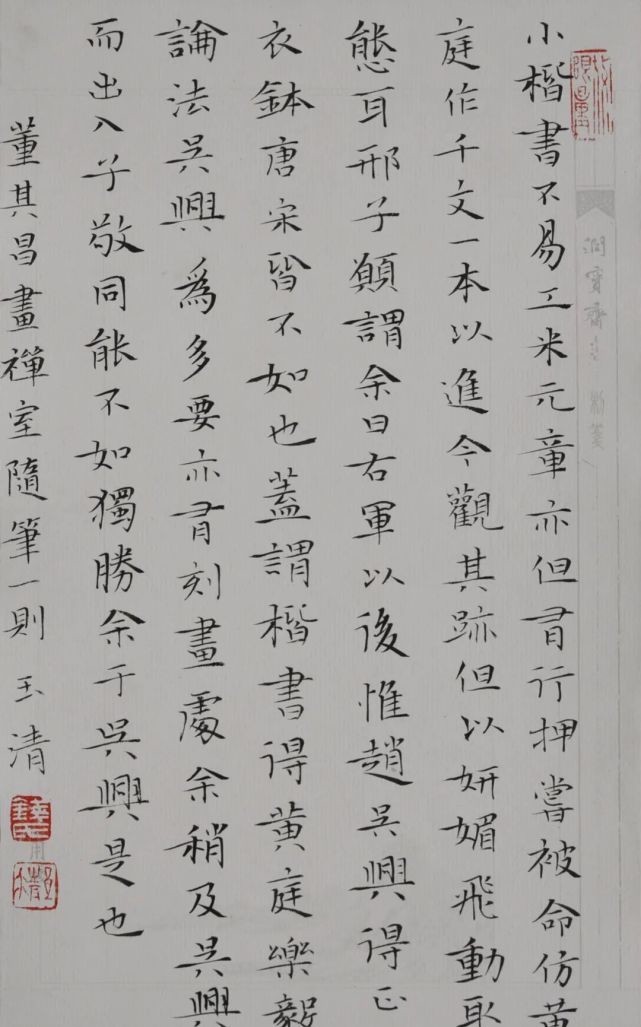 小楷書不易工米元章亦但有行押嘗被命仿黄
庭作千文一本以進今觀其跡但以妍媚飛動取
態耳邢子願謂余曰右軍以後惟趙吳興得正
衣鉢唐宋皆不如也蓋謂楷書得黄庭樂毅
論法吳興爲多要亦有刻畫處余稍及吳興
而出入子敬同能不如獨勝余于吳興是也
董其昌畫禪室隨筆一則 玉清